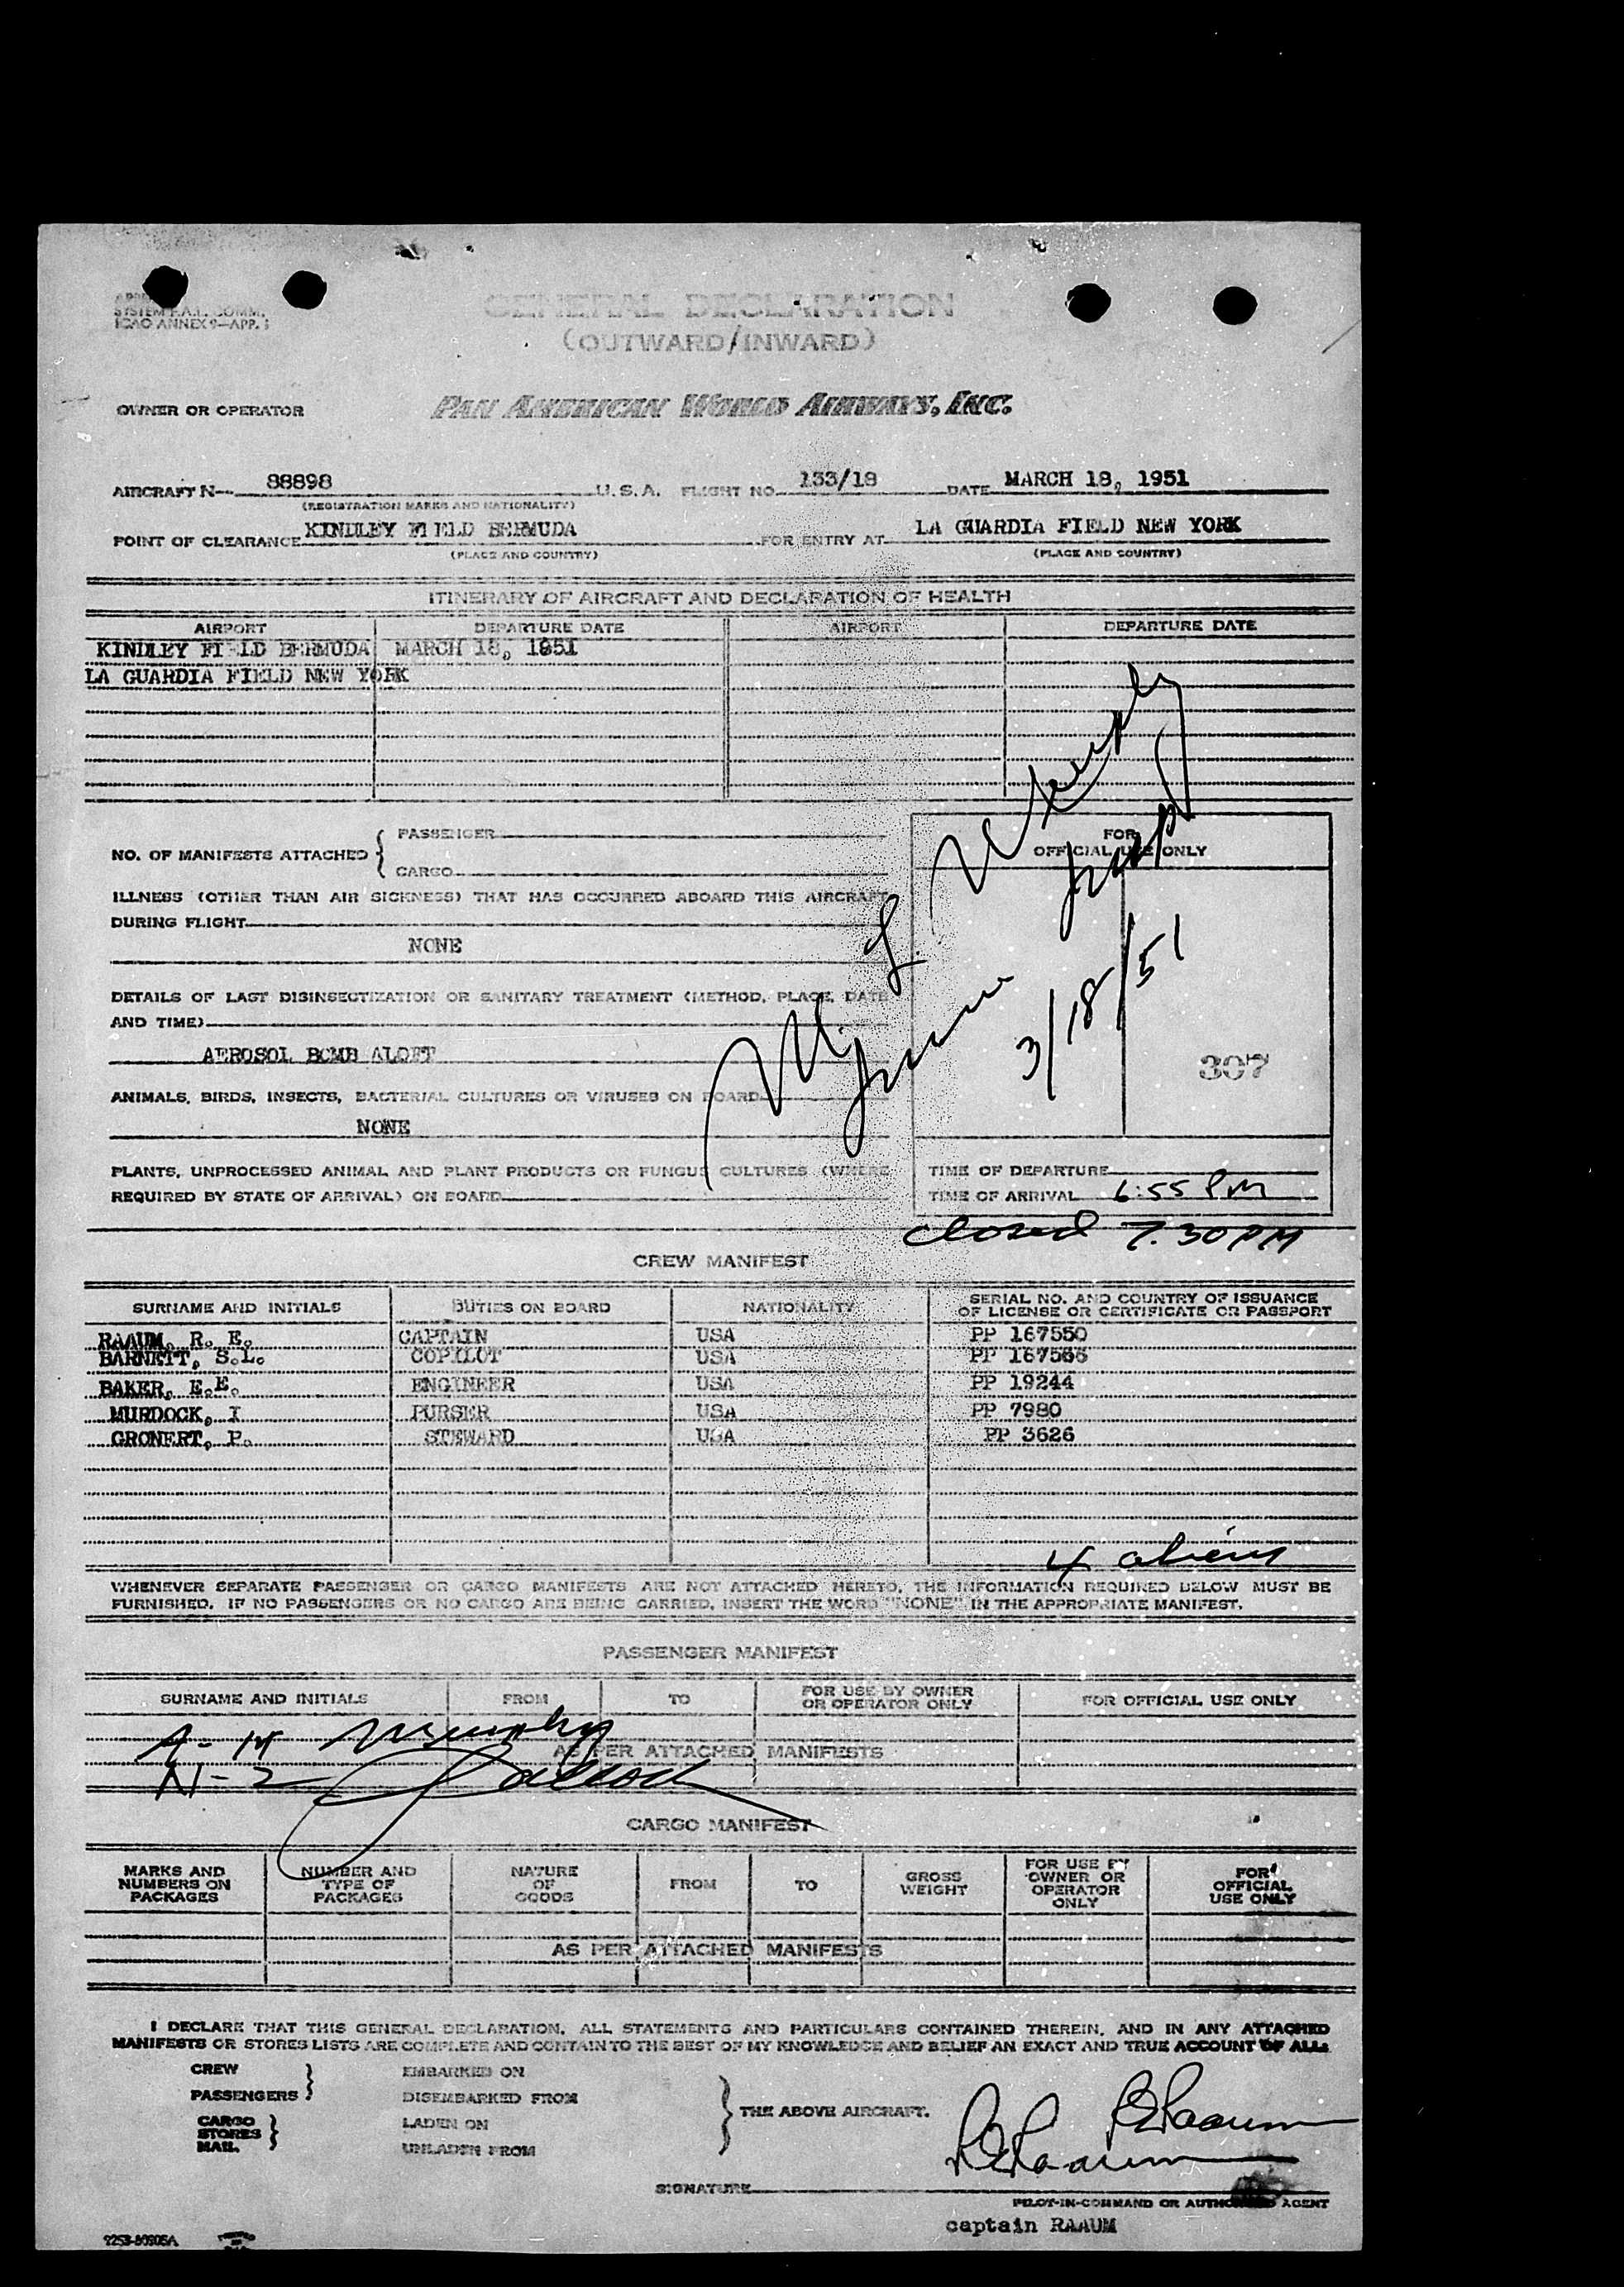 SYSTEM F.A.L. COMM.
ICAO ANNEX 9—APP. 1
GENERAL DECLARATION
(OUTWARD/INWARD)
OWNER OR OPERATOR PAN AMERICAN WORLD AIRWAYS, INC.
AIRCRAFT N— 88898 U. S. A. FLIGHT NO. 133/18 DATE MARCH 18, 1951
(REGISTRATION MARKS AND NATIONALITY)
POINT OF CLEARANCE KINDLEY FIELD BERMUDA FOR ENTRY AT LA GUARDIA FIELD NEW YORK
(PLACE AND COUNTRY) (PLACE AND COUNTRY)
ITINERARY OF AIRCRAFT AND DECLARATION OF HEALTH
AIRPORT DEPARTURE DATE AIRPORT DEPARTURE DATE
KINDLEY FIELD BERMUDA MARCH 18, 1951
LA GUARDIA FIELD NEW YORK
NO. OF MANIFESTS ATTACHED { PASSENGER
CARGO
FOR
OFFICIAL USE ONLY
ILLNESS (OTHER THAN AIR SICKNESS) THAT HAS OCCURRED ABOARD THIS AIRCRAFT
DURING FLIGHT
NONE
DETAILS OF LAST DISINSECTIZATION OR SANITARY TREATMENT (METHOD, PLACE, DATE
AND TIME)
AEROSOL BOMB ALOFT
3/18/51
307
ANIMALS, BIRDS, INSECTS, BACTERIAL CULTURES OR VIRUSES ON BOARD
NONE
PLANTS, UNPROCESSED ANIMAL AND PLANT PRODUCTS OR FUNGUS CULTURES (WHERE
REQUIRED BY STATE OF ARRIVAL) ON BOARD
TIME OF DEPARTURE
TIME OF ARRIVAL 6:55 PM
closed 7.30 PM
CREW MANIFEST
SURNAME AND INITIALS DUTIES ON BOARD NATIONALITY SERIAL NO. AND COUNTRY OF ISSUANCE
OF LICENSE OR CERTIFICATE OR PASSPORT
RAAUM, R. E. CAPTAIN USA PP 167550
BARNETT, S.L. COPILOT USA PP 167566
BAKER, E.E. ENGINEER USA PP 19244
MURDOCK, I PURSER USA PP 7980
GRONERT, P. STEWARD USA PP 3626
4 aliens
WHENEVER SEPARATE PASSENGER OR CARGO MANIFESTS ARE NOT ATTACHED HERETO, THE INFORMATION REQUIRED BELOW MUST BE
FURNISHED. IF NO PASSENGERS OR NO CARGO ARE BEING CARRIED, INSERT THE WORD "NONE" IN THE APPROPRIATE MANIFEST.
PASSENGER MANIFEST
SURNAME AND INITIALS FROM TO FOR USE BY OWNER
OR OPERATOR ONLY FOR OFFICIAL USE ONLY
Murphy
AS PER ATTACHED MANIFESTS
N-2
CARGO MANIFEST
MARKS AND
NUMBERS ON
PACKAGES NUMBER AND
TYPE OF
PACKAGES NATURE
OF
GOODS FROM TO GROSS
WEIGHT FOR USE BY
OWNER OR
OPERATOR
ONLY FOR
OFFICIAL
USE ONLY
AS PER ATTACHED MANIFESTS
I DECLARE THAT THIS GENERAL DECLARATION, ALL STATEMENTS AND PARTICULARS CONTAINED THEREIN, AND IN ANY ATTACHED
MANIFESTS OR STORES LISTS ARE COMPLETE AND CONTAIN TO THE BEST OF MY KNOWLEDGE AND BELIEF AN EXACT AND TRUE ACCOUNT OF ALL:
CREW EMBARKED ON
PASSENGERS DISEMBARKED FROM
CARGO LADEN ON
STORES
MAIL UNLADEN FROM
THE ABOVE AIRCRAFT.
RERaaum
RERaaum
SIGNATURE
PILOT-IN-COMMAND OR AUTHORIZED AGENT
captain RAAUM